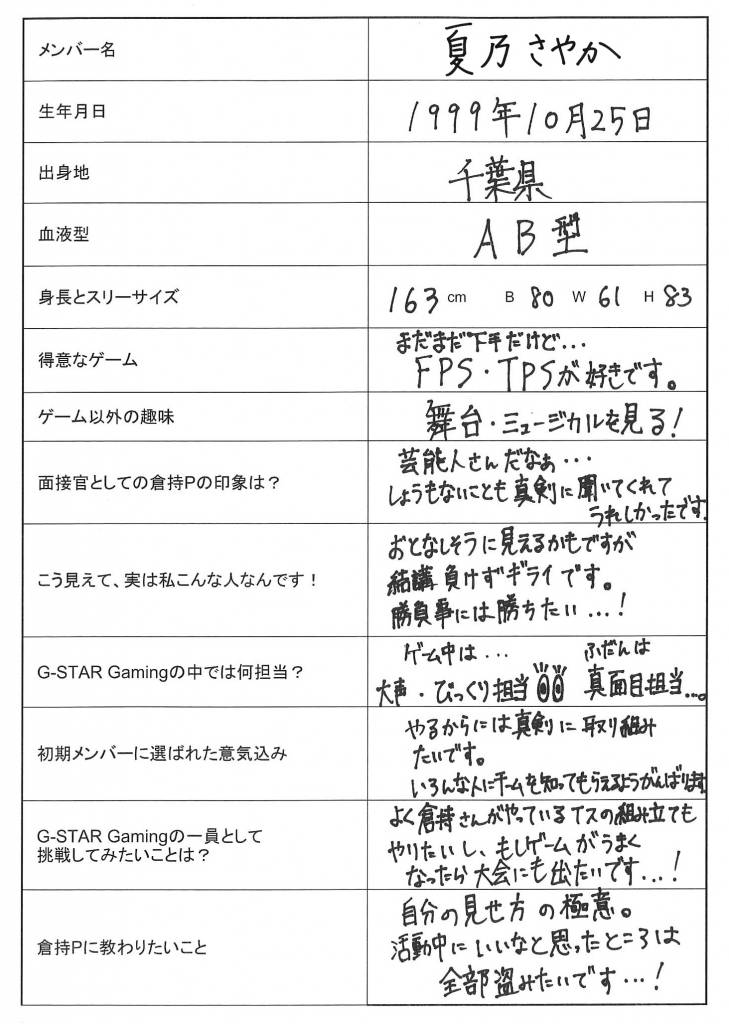 メンバー名
夏乃さやか
生年月日
1999年10月25日
出身地
千葉県
血液型
AB型
身長とスリーサイズ
163 cm B 80 W 61 H 83
得意なゲーム
まだまだ下手だけど...
FPS・TPSが好きです。
ゲーム以外の趣味
舞台・ミュージカルを見る!
面接官としての倉持Pの印象は?
芸能人さんだなぁ...
しょうもないことも真剣に聞いてくれて
うれしかったです。
こう見えて、実は私こんな人なんです!
おとなしそうに見えるかもですが
結講負けずギライです。
勝負事には勝ちたい...!
G-STAR Gamingの中では何担当?
ゲーム中は... ふだんは
大声・びっくり担当 真面目担当...。
初期メンバーに選ばれた意気込み
やるからには真剣に取り組み
たいです。
いろんな人にチームを知ってもらえるようがんばります
G-STAR Gamingの一員として
挑戦してみたいことは?
よく倉持さんがやっているイスの組み立ても
やりたいし、もしゲームがうまく
なったら大会にも出たいです...!
倉持Pに教わりたいこと
自分の見せ方の極意。
活動中にいいなと思ったところは
全部盗みたいです...!